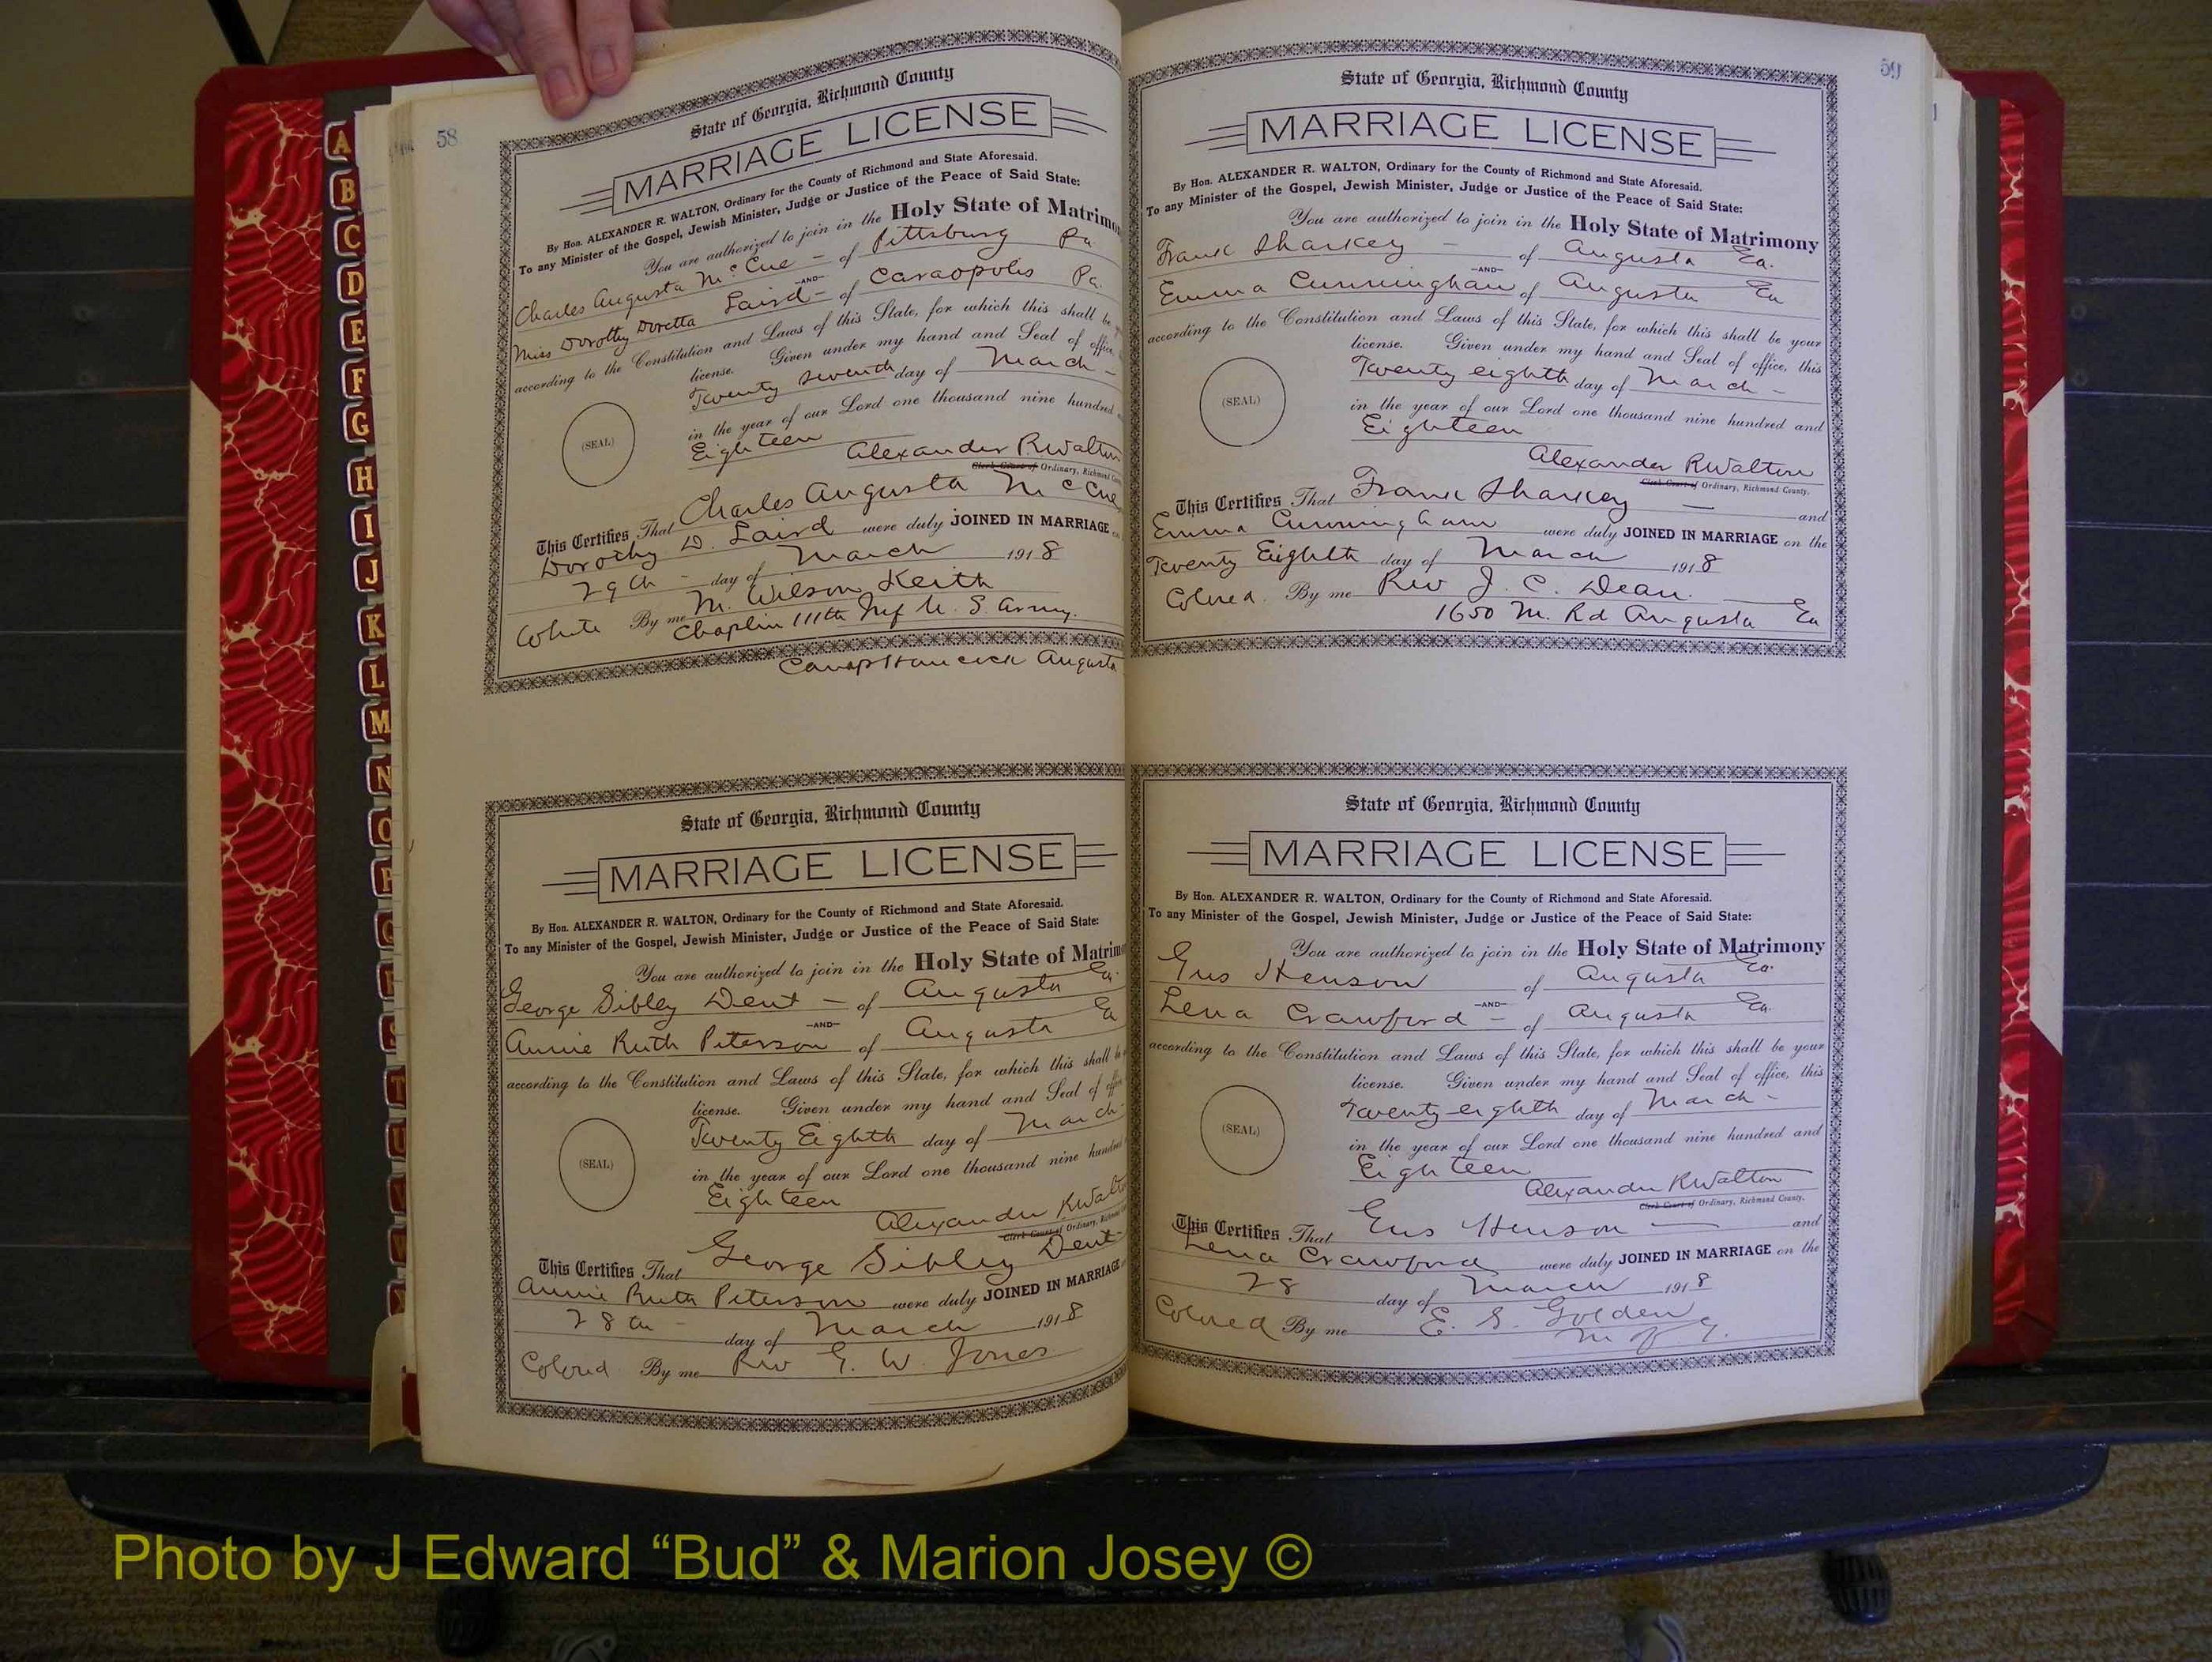 58
State of Georgia, Richmond County
MARRIAGE LICENSE
By Hon. ALEXANDER R. WALTON, Ordinary for the County of Richmond and State Aforesaid.
To any Minister of the Gospel, Jewish Minister, Judge or Justice of the Peace of Said State:
You are authorized to join in the Holy State of Matrimo
Charles Augusta McCue - of Pittsburg Pa
-AND-
Miss Dorothy Doretta Laird - of Caraopolis Pa.
according to the Constitution and Laws of this State, for which this shall be
license. Given under my hand and Seal of office,
Twenty seventh day of March -
in the year of our Lord one thousand nine hundred
Eighteen
(SEAL)
Alexander R Walton
Clerk Court of Ordinary, Richmond
This Certifies That Charles Augusta McCue
Dorothy D. Laird were duly JOINED IN MARRIAGE
29th - day of March 1918
White By me M. Wilson Keith
Chaplin 111th Inf U. S. Army.
Camp Hancock Augusta
State of Georgia, Richmond County
MARRIAGE LICENSE
By Hon. ALEXANDER R. WALTON, Ordinary for the County of Richmond and State Aforesaid.
To any Minister of the Gospel, Jewish Minister, Judge or Justice of the Peace of Said State:
You are authorized to join in the Holy State of Matrim
George Sibley Dent - of Augusta Ga.
-AND-
Annie Ruth Peterson of Augusta Ga
according to the Constitution and Laws of this State, for which this shall be
license. Given under my hand and Seal of offi
Twenty Eighth day of March -
in the year of our Lord one thousand nine hundred
Eighteen
(SEAL)
Alexander R Walto
Clerk Court of Ordinary, Richmond
This Certifies That George Sibley Dent -
Annie Ruth Peterson were duly JOINED IN MARRIAGE
28th - day of March 1918
Colored By me Rev G. W. Jones
59
State of Georgia, Richmond County
MARRIAGE LICENSE
By Hon. ALEXANDER R. WALTON, Ordinary for the County of Richmond and State Aforesaid.
To any Minister of the Gospel, Jewish Minister, Judge or Justice of the Peace of Said State:
You are authorized to join in the Holy State of Matrimony
Frank Sharkey - of Augusta Ga.
-AND-
Emma Cunningham of Augusta Ga
according to the Constitution and Laws of this State, for which this shall be your
license. Given under my hand and Seal of office, this
Twenty eighth day of March -
in the year of our Lord one thousand nine hundred and
Eighteen
(SEAL)
Alexander R Walton
Clerk Court of Ordinary, Richmond County.
This Certifies That Frank Sharkey - and
Emma Cunningham were duly JOINED IN MARRIAGE on the
Twenty Eighth day of March 1918
Colored. By me Rev J. C. Dean.
1650 M. Rd Augusta Ga
State of Georgia, Richmond County
MARRIAGE LICENSE
By Hon. ALEXANDER R. WALTON, Ordinary for the County of Richmond and State Aforesaid.
To any Minister of the Gospel, Jewish Minister, Judge or Justice of the Peace of Said State:
You are authorized to join in the Holy State of Matrimony
Gus Henson of Augusta Ga.
-AND-
Lena Crawford - of Augusta Ga.
according to the Constitution and Laws of this State, for which this shall be your
license. Given under my hand and Seal of office, this
Twenty eighth day of March -
in the year of our Lord one thousand nine hundred and
Eighteen
(SEAL)
Alexander R Walton
Clerk Court of Ordinary, Richmond County.
This Certifies That Gus Henson - and
Lena Crawford were duly JOINED IN MARRIAGE on the
28 day of March 1918
Colored By me E. S. Golden
M. of G.
A
B
C
D
E
F
G
H
I
J
K
L
M
N
O
P
Q
R
S
T
U
V
W
Photo by J Edward “Bud” & Marion Josey ©